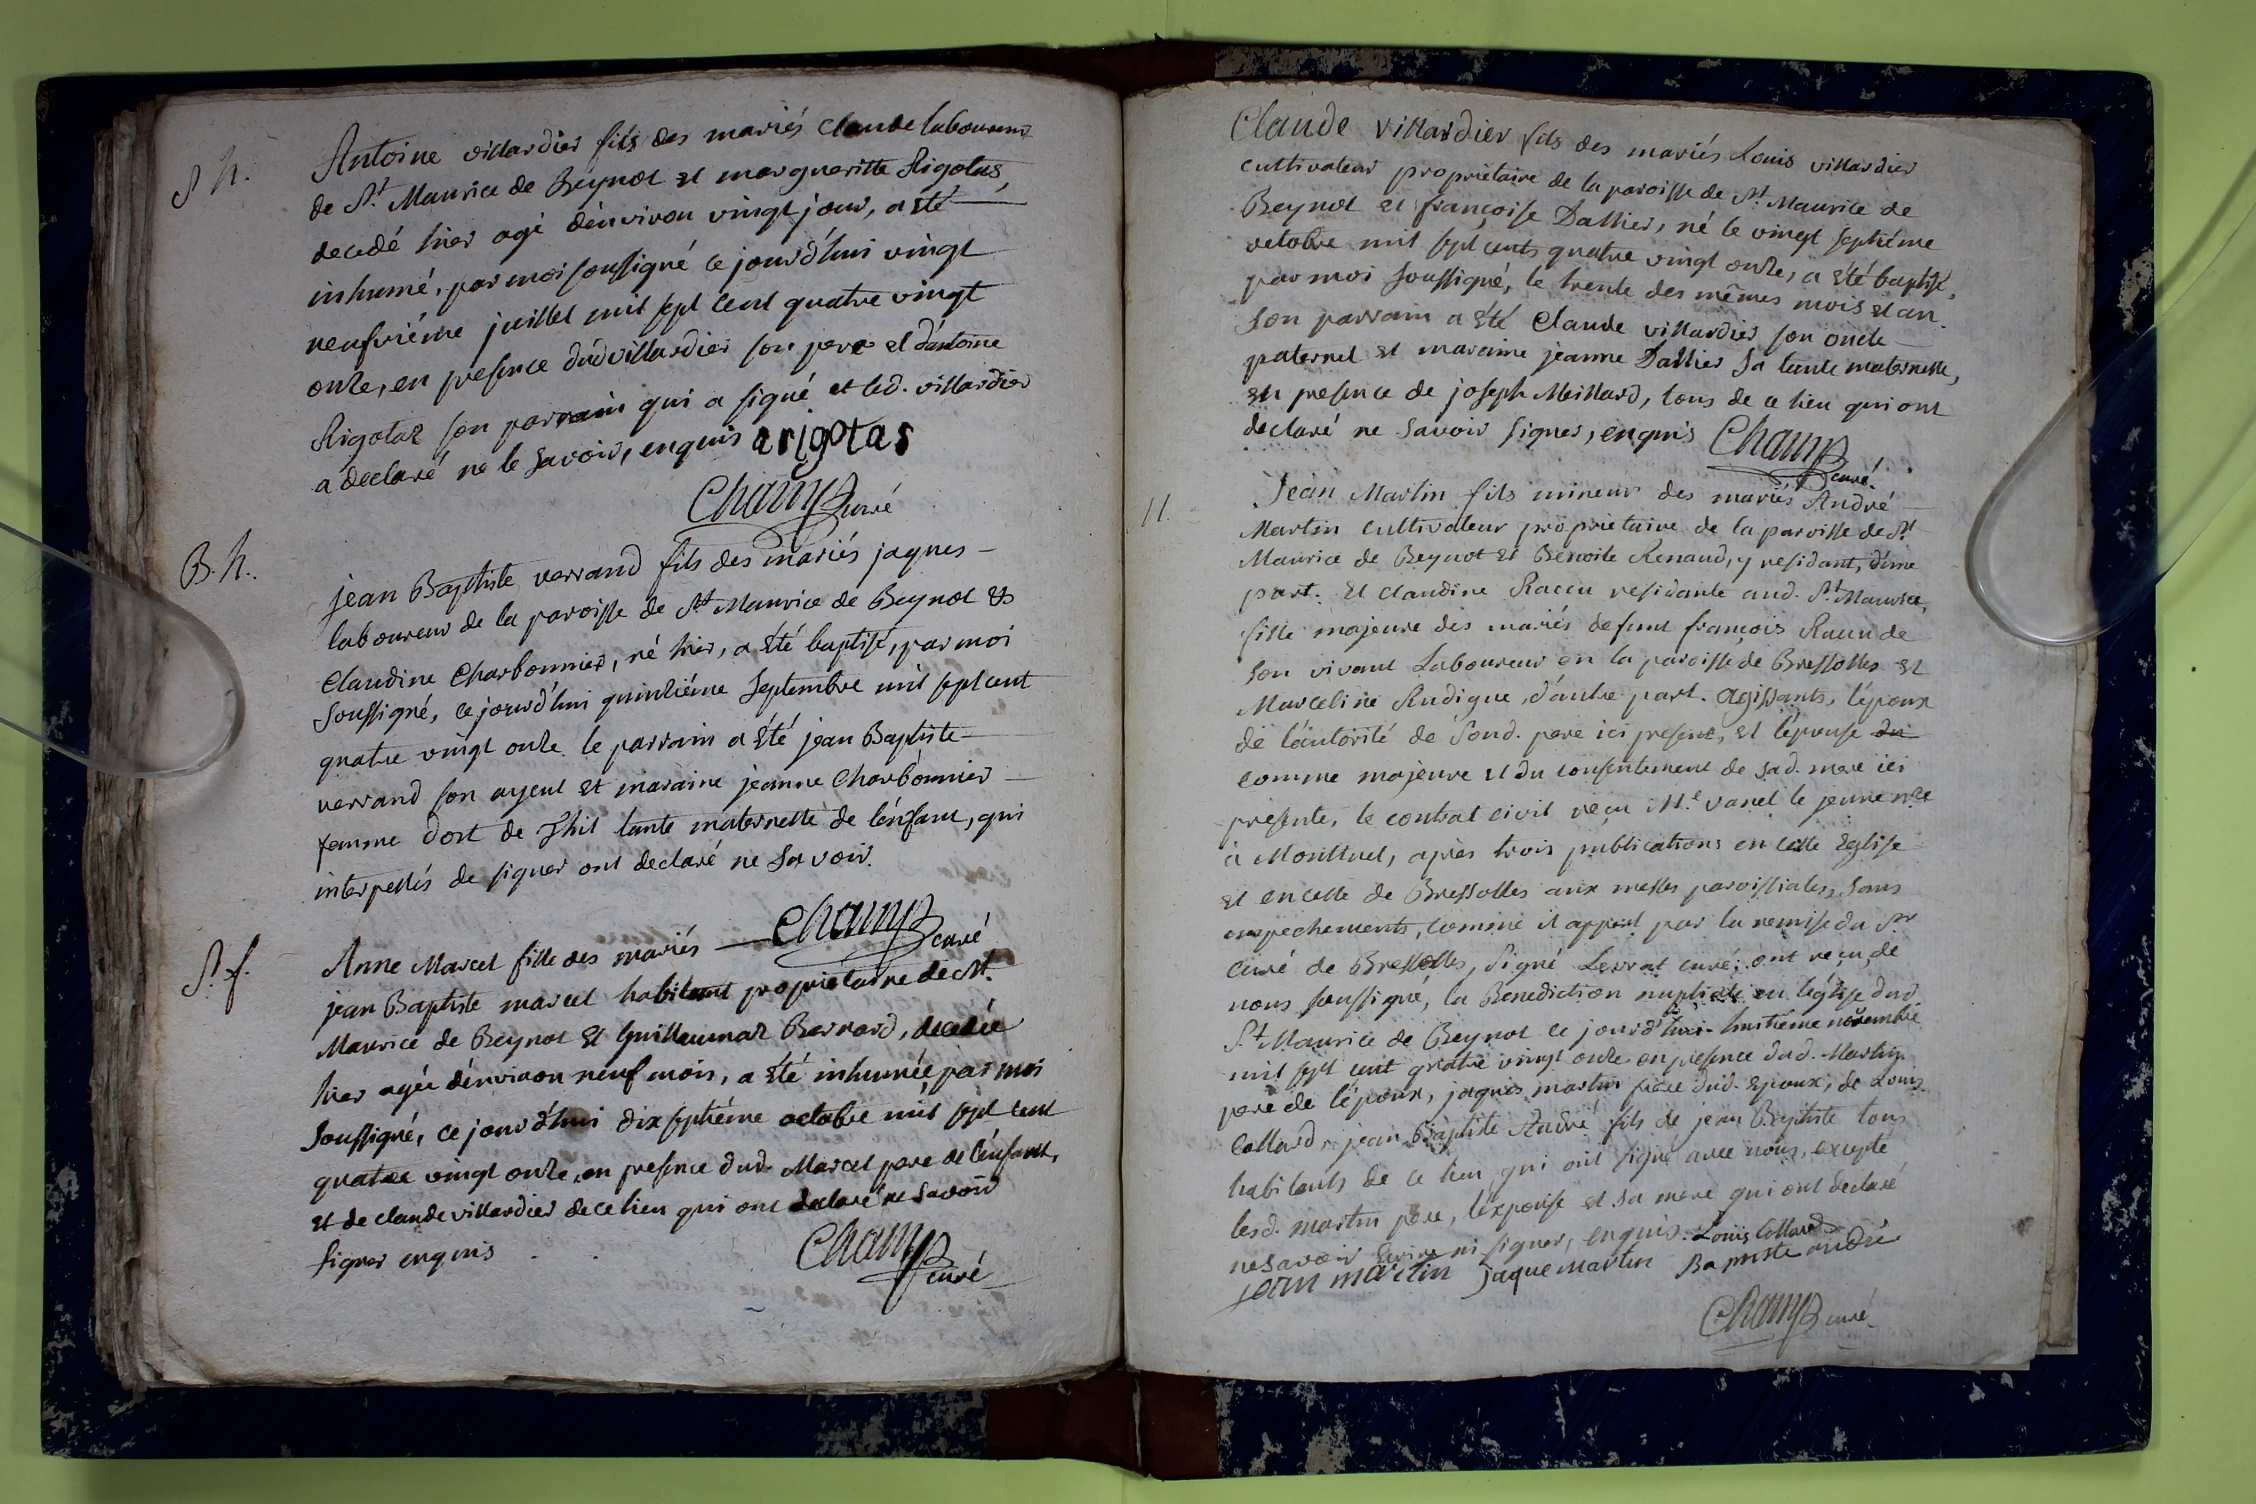 S. h.
Antoine villardier fils des mariés Claude laboureur
de St. Maurice de Beynot et margueritte Rigotas,
decedé hier agé d'environ vingt jour, a été
inhumé, par moi soussigné ce jourd'hui vingt
neufviéme juillet mil sept cent quatre vingt
onze, en presence dud villardier son pere et d'antoine
Rigotaz son parrain qui a signé et led. villardier
a declaré ne le savoir, enquis arigotas
Champ curé
B. h.
jean Baptiste verrand fils des mariés jaques
laboureur de la paroisse de St Maurice de Beynot et
Claudine Charbonnier, né hier, a été baptisé, par moi
soussigné, ce jourd'hui quinziéme septembre mil sept cent
quatre vingt onze. le parrain a été jean Baptiste
verrand son ayeul et maraine jeanne Charbonnier
femme dost de Thil tante maternelle de l'enfant, qui
interpellés de signer ont declaré ne savoir.
Champ curé
S. f.
Anne Marcel fille des mariés
jean Baptiste marcel habitant proprietaire de St.
Maurice de Beynot et Guillaumaz Bernard, decedée
hier agée d'environ neuf mois, a été inhumée par moi
soussigné, ce jourd'hui dix septiéme octobre mil sept cent
quatre vingt onze, en presence dud. Marcel pere de l'enfant,
et de claude villardier de ce lieu qui ont declaré ne savoir
signer enquis
Champ curé
Claude villardier fils des mariés Louis villardier
cultivateur proprietaire de la paroisse de St. Maurice de
Beynot et françoise Dallier, né le vingt septiéme
octobre mil sept cents quatre vingt onze, a été baptisé,
par moi soussigné, le trente des mêmes mois et an.
son parrain a été Claude villardier son oncle
paternel et maraine jeanne Dallier sa tante maternelle,
en presence de joseph Meillard, tous de ce lieu qui ont
declaré ne savoir signer, enquis Champ
curé.
M.
Jean Martin fils mineur des mariés André
Martin cultivateur proprietaire de la paroisse de St
Maurice de Beynot et Benoite Renaud, y residant, d'une
part. et claudine Raccu residante aud. St. Maurice,
fille majeure des mariés defunt françois Racu de
son vivant Laboureur en la paroisse de Bressolles et
Marceline Rudigue, d'autre part. agissants, l'époux
de l'autorité de sond. pere ici present, et l'epouse du
comme majeure et du consentement de sad. mere ici
presente, le contrat civil reçu Me. vanel le jeune nre
à Montluel, après trois publications en cette Eglise
et en celle de Bressolles aux messes paroissiales, sans
empechements, comme il appert par la remise du Sr
curé de Bressolles, signé Lerrat curé; ont reçu de
nous soussigné, la Benediction nuptiale en l'église dud
St Maurice de Beynot ce jourd'hui huitiéme novembre
mil sept cent quatre vingt onze en presence dud. Martin
pere de l'époux, jaques martin frere dud. Epoux, de Louis
Collard, jean Baptiste André fils de jean Baptiste tous
habitants de ce lieu qui ont signé avec nous, excepté
lesd. martin pere, l'expouse et sa mere qui ont declaré
ne savoir Ecrire ni signer, enquis. Louis Collard
jean martin jaque martin Baptiste andré
Champ curé